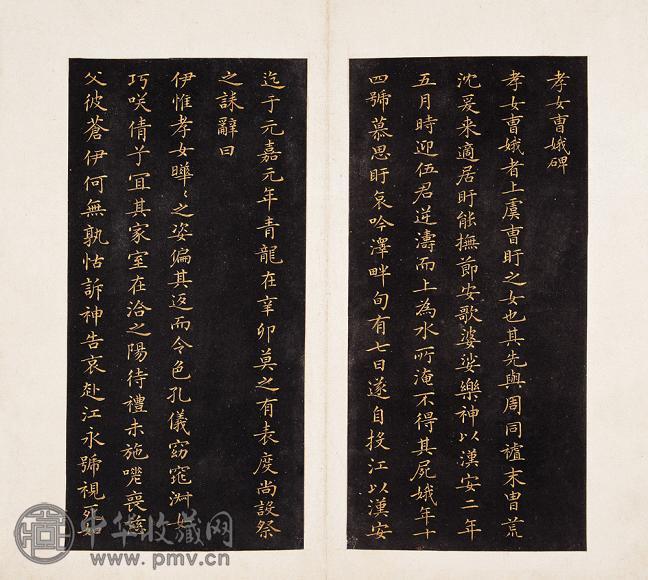 孝女曹娥碑
孝女曹娥者上虞曹盱之女也其先與周同祖末胄荒
沈爰来適居盱能撫節安歌婆娑樂神以漢安二年
五月時迎伍君逆濤而上為水所淹不得其屍娥年十
四號慕思盱哀吟澤畔旬有七日遂自投江以漢安
迄于元嘉元年青龍在辛卯莫之有表度尚設祭
之誄辭曰
伊惟孝女曄〻之姿偏其返而令色孔儀窈窕淑女
巧笑倩兮宜其家室在洽之陽待禮未施嗟喪慈
父彼蒼伊何無孰怙訴神告哀赴江永號視死
中华收藏网
www.pmv.cn